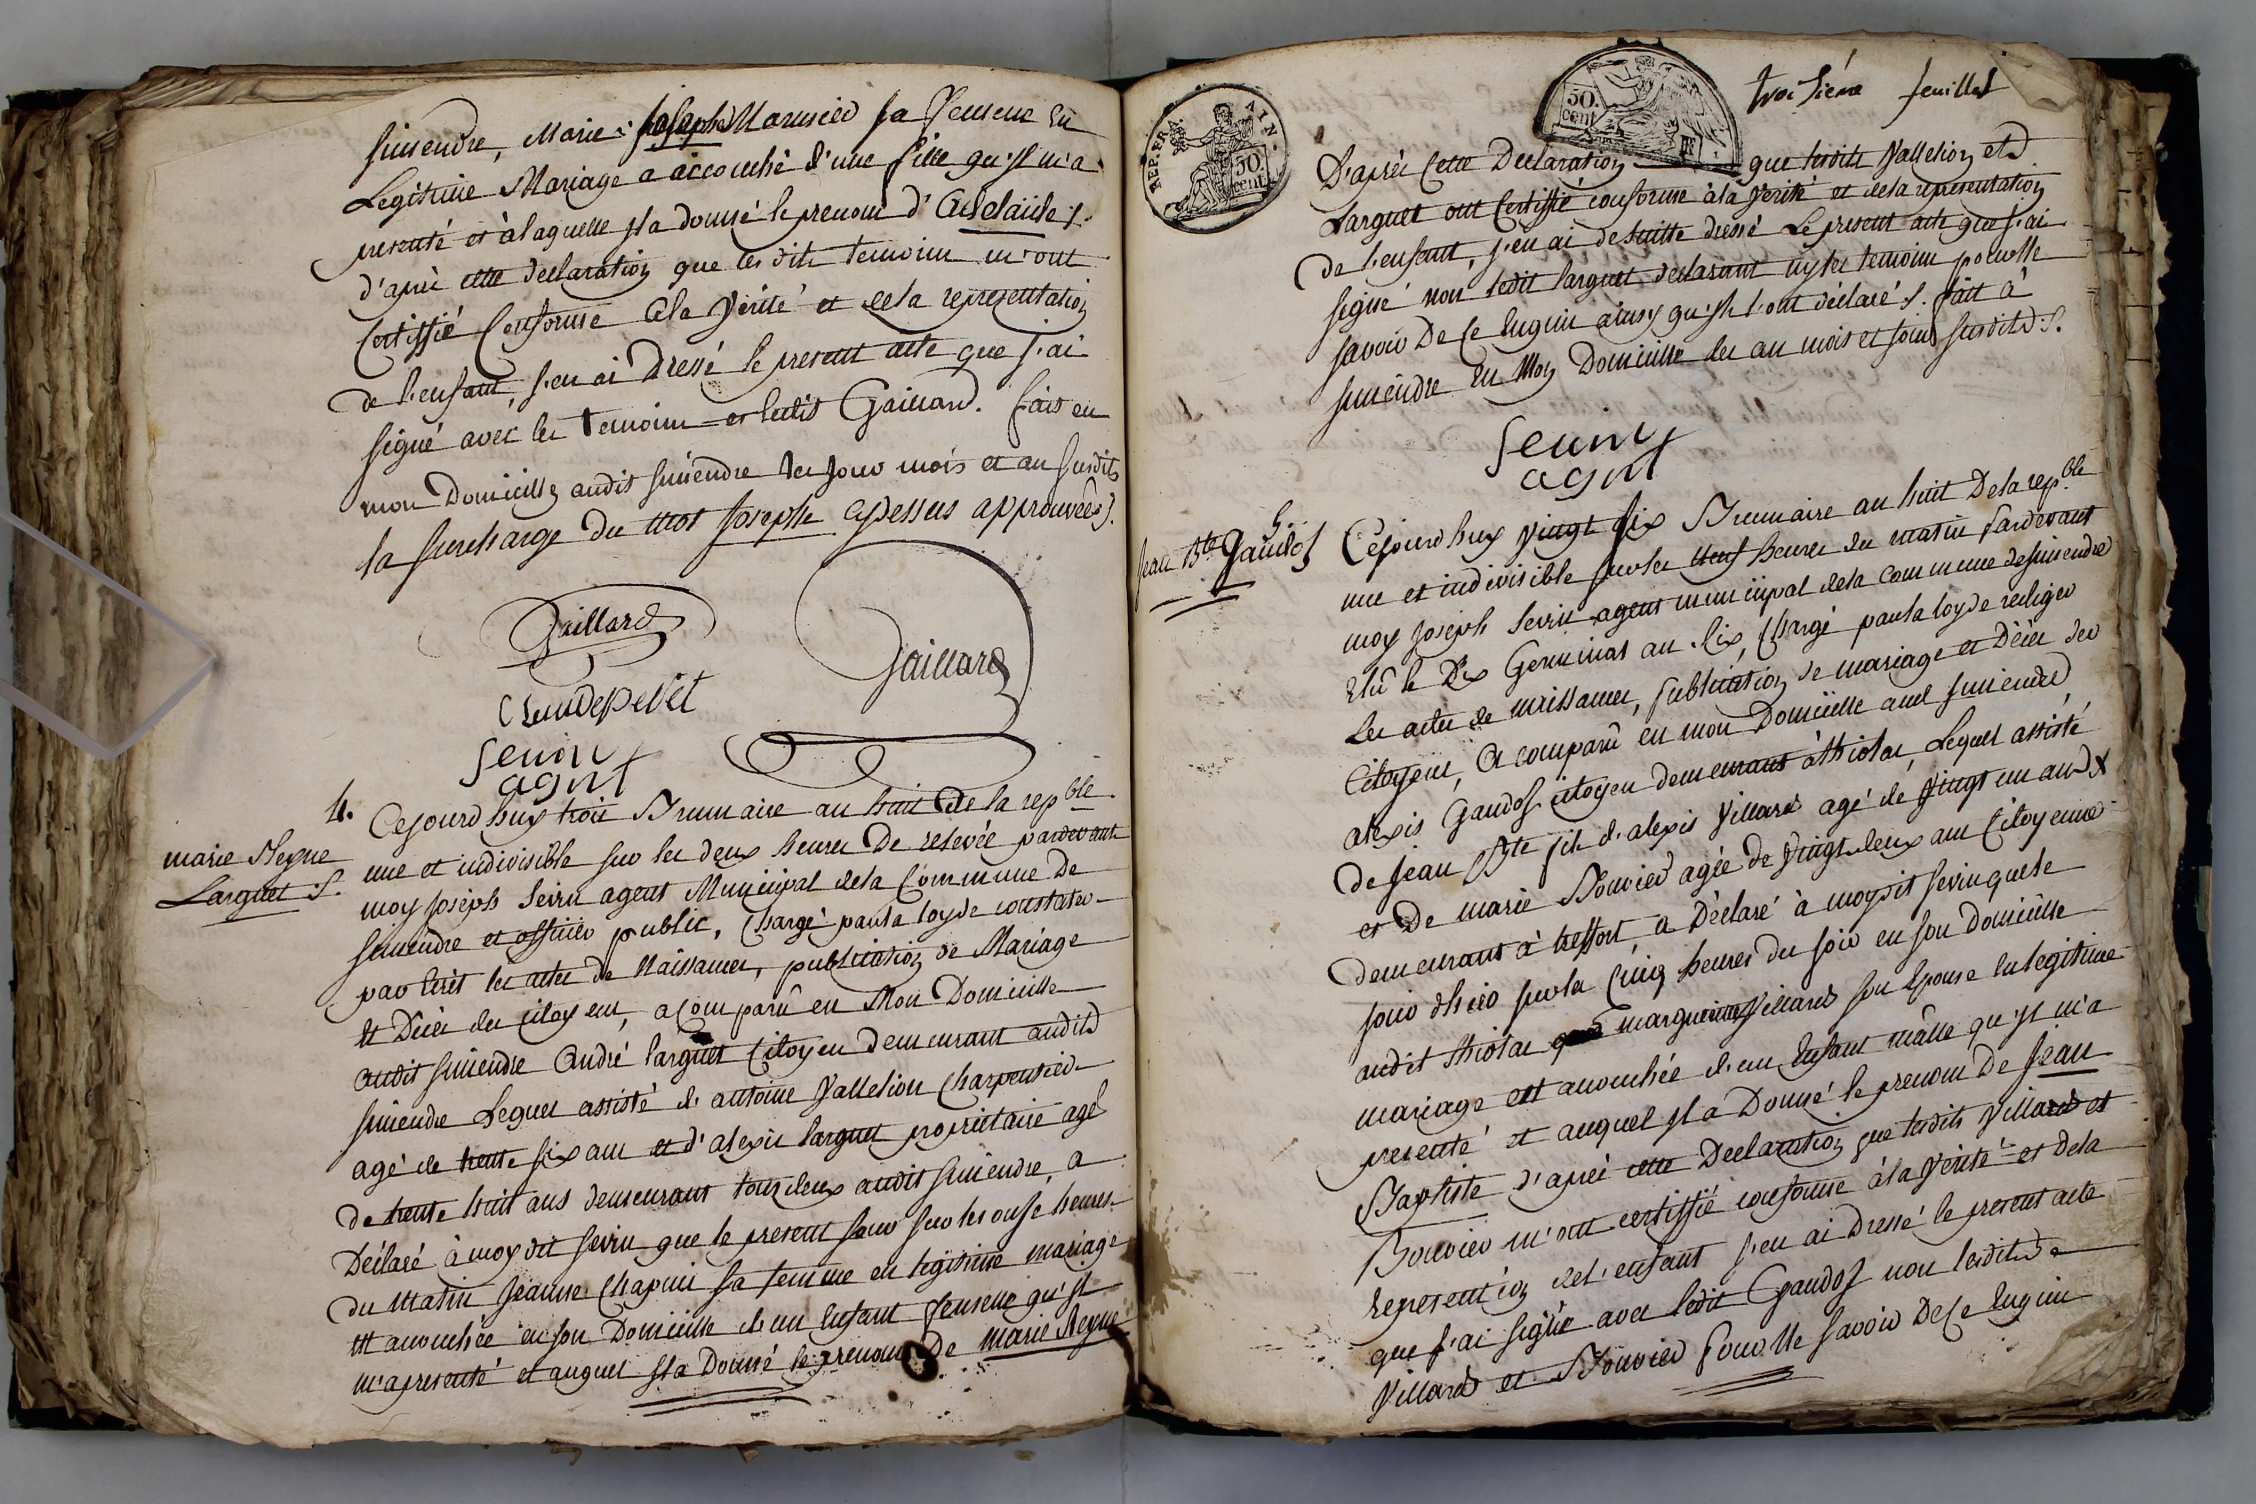 Simendre, Marie Joseph Marmier sa femme En
Legitime Mariage a accouché d'une fille qu'il m'a
presenté et à laquelle jl a donné le prenom d'Adelaide S.
d'après cette declaration que les dits temoins m'ont
Certiffié Conforme à la Vérité et de la representation
de l'enfant, j'en ai dressé le present acte que j'ai
signé avec les temoins et ledit Gaillard. fait en
mon Domicille audit Simendre les jour mois et an susdits
la surcharge du mot Josephe cydessus approuvée S.
Gaillard
Gaillard
Claudepevet
Sevrin
agnt
4.
marie Reyne
Larguet S.
Cejourdhuy trois Brumaire an huit de la repble
une et indivisible sur les deux heures De relevée pardevant
moy Joseph Sevrin agent Municipal de la Commune de
Simendre et officier public, Chargé par la loy de constater
par Ecrit les actes de Naissances, publication de Mariage
et Décès des citoyens, a Comparû en Mon Domicille
audit Simendre André larguet Citoyen demeurant audit
Simendre Lequel assisté d'antoine Vallesion Charpentier
agé de trente six ans et d'alexis larguet propriétaire agé
de trente huit ans demeurant tous deux audit Simendre, a
Déclaré à moy dit Sevrin que le present jour sur les onse heures
du matin Jeanne Chapuis sa femme en legitime mariage
est accouchée en son Domicille d'un Enfant femelle qu'jl
m'a presenté et auquel jl a Donné le prenom De Marie Reyne
REP. FRA. AIN.
50. cent.
50. cent.
troisiéme feuillet
D'après Cette Declaration que lesdits Vallesion et
Larguet ont Certiffié conforme à la Verité et de la representation
de l'enfant, j'en ai de suitte dressé Le present acte que j'ai
signé non ledit larguet declarant ny les temoins pour ne
savoir De ce Enquis ainsy qu'jls l'ont déclaré S. fait à
Simendre En Mon Domicille les an mois et jour susdits S.
Sevrin
agnt
Jean Bte Gaudoz
Cejourdhuy Vingt six Brumaire an huit De la repble
une et indivisible sur les neuf heures du matin Pardevant
moy Joseph Sevrin agent municipal de la commune de Simendre
Elû le Dix Germinal an Six, Chargé par la loy de rediger
Les actes de naissances, publication de mariage et Décès des
Citoyens, A comparû en mon Domicille aud Simendre
alexis Gaudoz citoyen demeurant à thiolas, Lequel assisté
de Jean Bte fils d'alexis Villard agé de Vingt un ans
et De marie Bouvier agée de Vingt deux ans Citoyenne
demeurant à treffort, a Déclaré à moy dit Sevrin que le
jour d'hier sur la Cinq heures du soir en son Domicille
audit thiolas margueritte Villard son Epouse En legitime
mariage est accouchée d'un Enfant mâlle qu'jl m'a
presenté et auquel jl a Donné le prenom De Jean
Baptiste d'après cette Declaration que lesdits Villard et
Bouvier m'ont certiffié conforme à la Verité et de la
represention de l'enfant j'en ai Dressé le present acte
que j'ai signé avec ledit Gaudoz non lesdits
Villard et Bouvier Pour Ne savoir De Ce Enquis